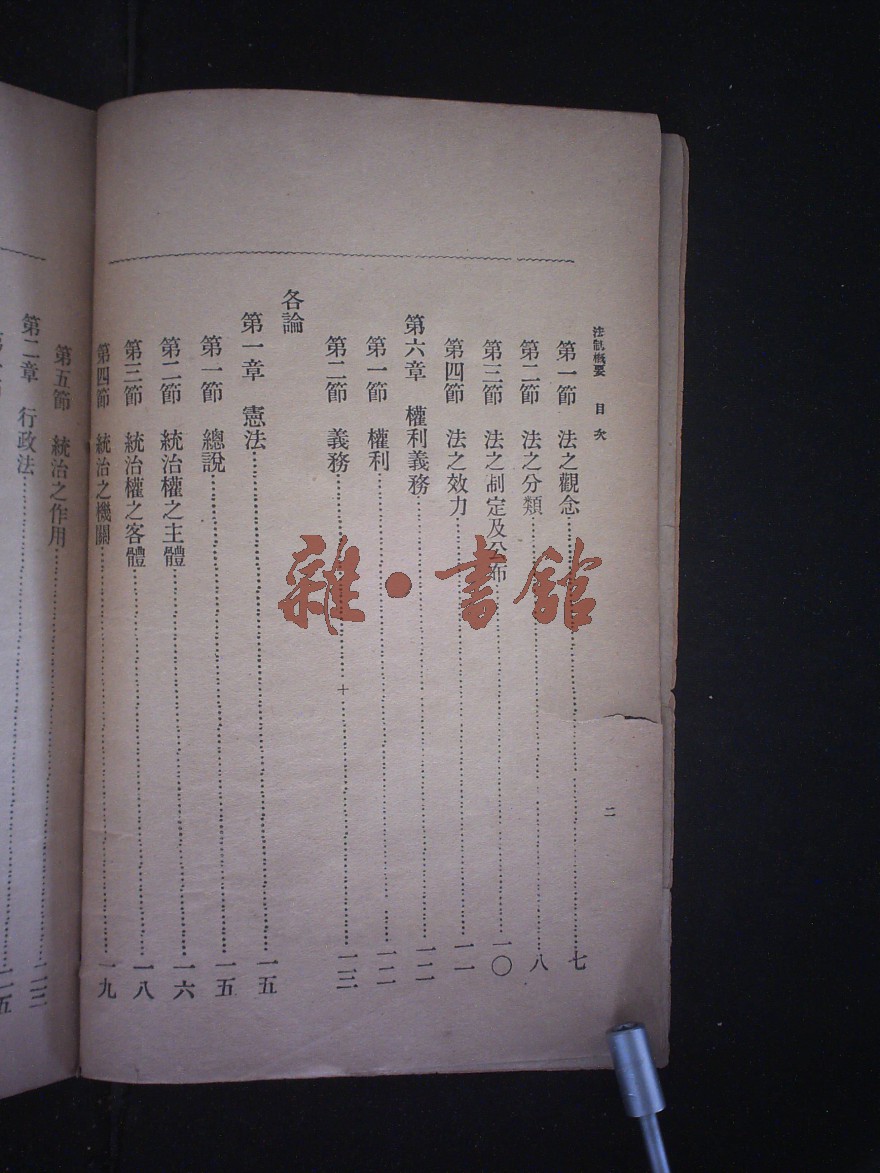 法制概要 目次
二
第一節 法之觀念 七
第二節 法之分類 八
第三節 法之制定及公布 一〇
第四節 法之效力 一一
第六章 權利義務 一二
第一節 權利 一二
第二節 義務 一三
各論
第一章 憲法 一五
第一節 總說 一五
第二節 統治權之主體 一六
第三節 統治權之客體 一八
第四節 統治之機關 一九
第五節 統治之作用 二三
第二章 行政法 二五
雜·書館